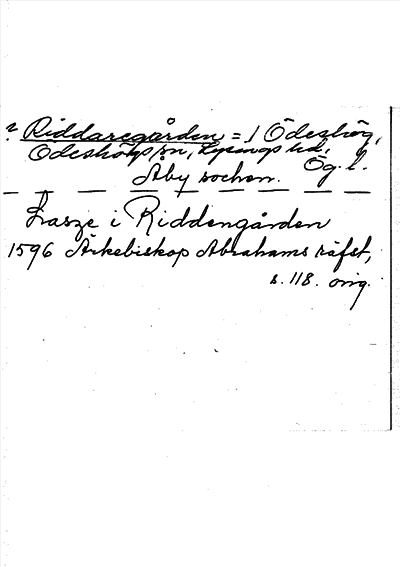 ? Riddaregården = / Ödeshög,
Ödeshögs sn, Lysings hd.
Ög. l.
Åby socken.
Lasze i Riddengården
1596 Ärkebiskop Abrahams räfst,
s. 118. orig.